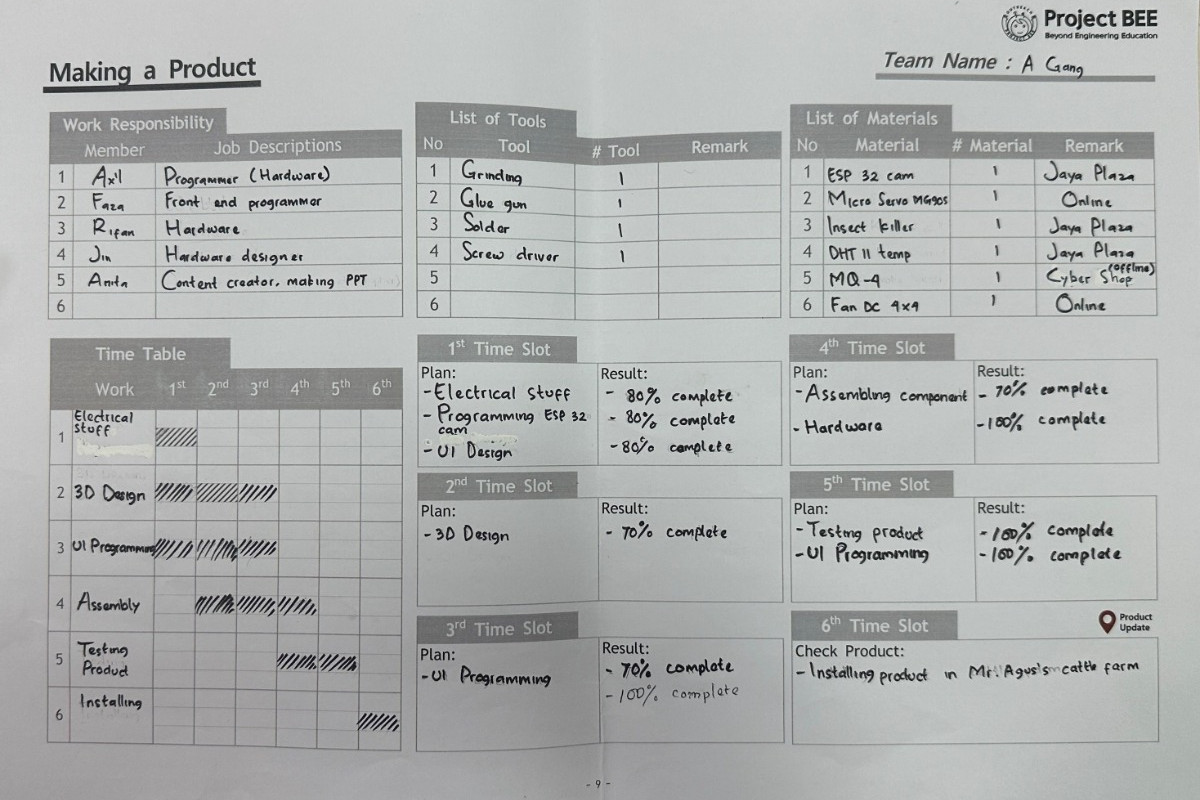 Project BEE
Beyond Engineering Education
Making a Product
Team Name : A Gang
Work Responsibility
Member Job Descriptions
1 Axl Programmer (Hardware)
2 Faza Front end programmer
3 Rifan Hardware
4 Jin Hardware designer
5 Anita Content creator, making PPT
6
List of Tools
No Tool # Tool Remark
1 Grinding 1
2 Glue gun 1
3 Solder 1
4 Screw driver 1
5
6
List of Materials
No Material # Material Remark
1 ESP 32 cam 1 Jaya Plaza
2 Micro Servo MG90S 1 Online
3 Insect killer 1 Jaya Plaza
4 DHT 11 temp 1 Jaya Plaza
5 MQ-4 1 Cyber Shop (offline)
6 Fan DC 4x4 1 Online
Time Table
Work 1st 2nd 3rd 4th 5th 6th
1 Electrical
stuff
2 3D Design
3 UI Programming
4 Assembly
5 Testing
Product
6 Installing
1st Time Slot
Plan:
-Electrical Stuff
-Programming ESP 32
cam
-UI Design
Result:
- 80% complete
- 80% complete
- 80% complete
2nd Time Slot
Plan:
-3D Design
Result:
- 70% complete
3rd Time Slot
Plan:
-UI Programming
Result:
- 70% complete
- 100% complete
4th Time Slot
Plan:
-Assembling component
-Hardware
Result:
- 70% complete
-100% complete
5th Time Slot
Plan:
-Testing product
-UI Programming
Result:
-100% complete
-100% complete
6th Time Slot
Product
Update
Check Product:
-Installing product in Mr. Agus's cattle farm
- 9 -